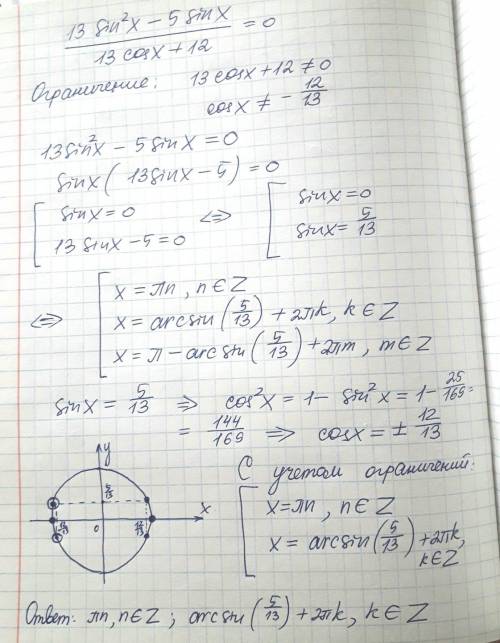 13 sin²x − 5 sin x / 13 cos x + 12 = 0
Ограничение: 13 cos x + 12 ≠ 0
cos x ≠ − 12/13
13 sin²x − 5 sin x = 0
sin x ( 13 sin x − 5 ) = 0
[ sin x = 0 <=> [ sin x = 0
13 sin x − 5 = 0 sin x = 5/13
<=> [ x = πn , n ∈ Z
x = arcsin ( 5/13 ) + 2πk, k ∈ Z
x = π − arcsin ( 5/13 ) + 2πm , m ∈ Z
sin x = 5/13 => cos²x = 1 − sin²x = 1 − 25/169 =
= 144/169 => cos x = ± 12/13
y
5/13
x
−12/13 0 12/13
С учетом ограничений:
[ x = πn , n ∈ Z
x = arcsin ( 5/13 ) + 2πk,
k ∈ Z
Ответ: πn, n ∈ Z ; arcsin ( 5/13 ) + 2πk, k ∈ Z